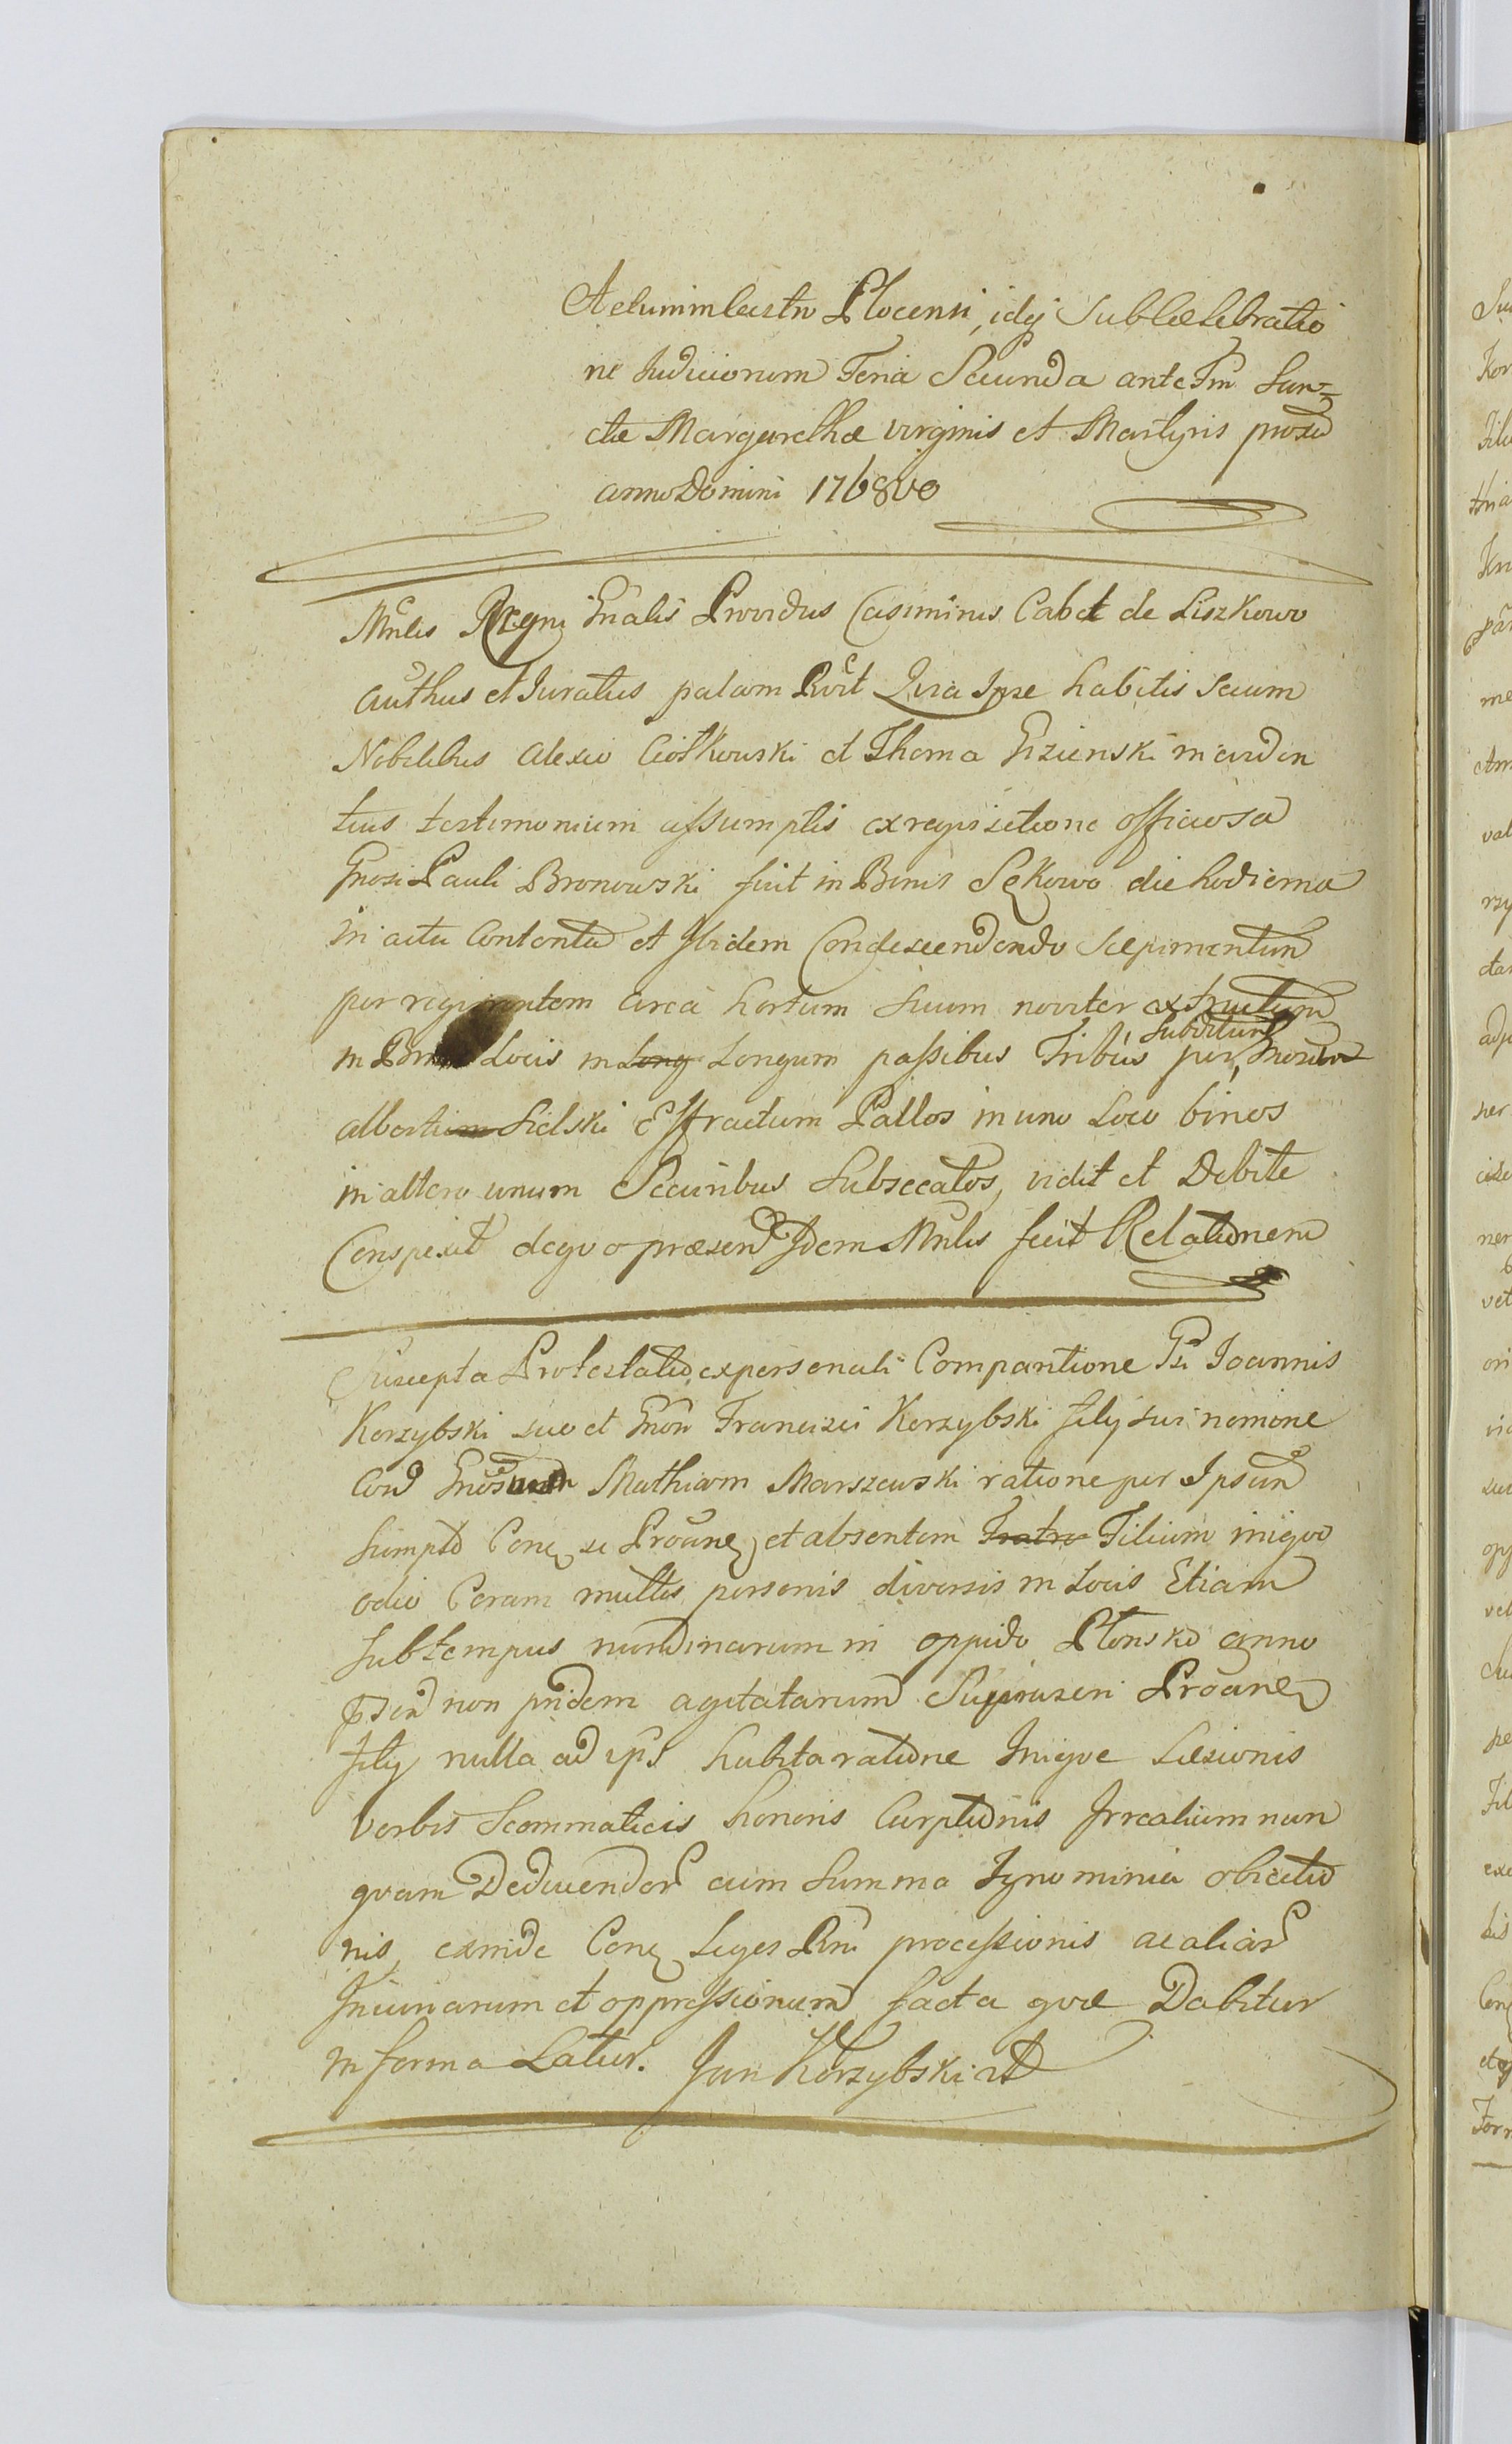 Actum in Castro Plocensi, idq Sub Celebratio
ne Judiciorum Feria Secunda ante Fm San=
ctæ Margarethæ virginis et Martyris proxa
anno Domini 1768vo
Mnlis Regni Gnalis Providus Casimirus Cabet de Liszkowo
authus et Juratus palam Rvit Quia Ipse habitis secum
Nobilibus Alexio Ciołkowski et Thoma Gizienski in eviden
tius testimonium assumptis ex reqvisitione officiosa
Gnosi Pauli Bronowski fuit in Bonis Sękowo die hodierna
in actu Contento et Ibidem Condescendendo Sæpimentum
per reqvirentem circa hortum suum noviter extructum
in Locis in Long Longum passibus Tribus per subditum
Alberti Sielski Effractum Pallos in uno Loco binos
in altero unum Securibus Subsecatos, vidit et Debite
Conspexit de qvo præsen Idem Mnlis fecit Relationem
Suscepta Protestatio, ex personali Comparitione Gsi Joannis
Korzybski suo et Gnosi Francisci Korzybski filij sui nomine
Con Gnosum Mathiam Marszewski ratione per Ipsum
Sumpto Conq se Proane et absentem Fratre Filium iniqvo
odio Coram multis personis diversis in Locis Etiam
Sub tempus nundinarum in oppido Płonsko anno
non pridem agitatarum Proane
filij nulla ad ips habita ratione Iniqvæ Læsionis
verbis Scommaticis honoris Carptionis Irrealium nun
qvam Deducendor cum Summa Ignominia obiectio
nis, exinde Conq Leges Rni processionis ac aliar
Iniuriarum et oppressionum facta qvæ Dabitur
in forma Latiori. Jan Korzybski